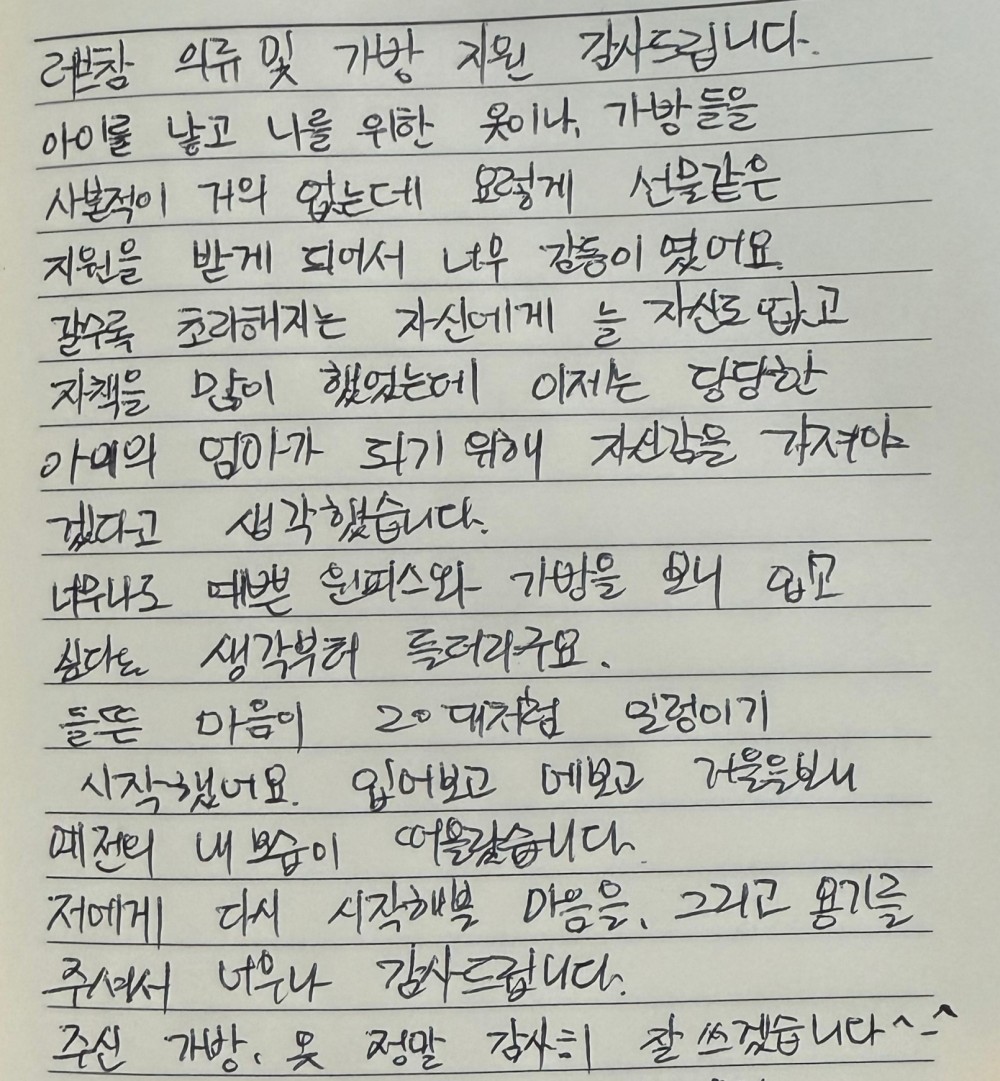 르브참 의류 및 가방 지원 감사드립니다.
아이를 낳고 나를 위한 옷이나, 가방들을
사본적이 거의 없는데 요렇게 선물같은
지원을 받게 되어서 너무 감동이였어요.
갈수록 초라해지는 자신에게 늘 자신도 없고
자책을 많이 했었는데 이제는 당당한
아이의 엄마가 되기 위해 자신감을 가져야
겠다고 생각했습니다.
너무나도 예쁜 원피스와 가방을 보니 입고
싶다는 생각부터 들더라구요.
들뜬 마음이 20대처럼 일렁이기
시작했어요. 입어보고 메보고 거울을보니
예전의 내 모습이 떠올랐습니다.
저에게 다시 시작해볼 마음을, 그리고 용기를
주셔서 너무나 감사드립니다.
주신 가방, 옷 정말 감사히 잘 쓰겠습니다^-^